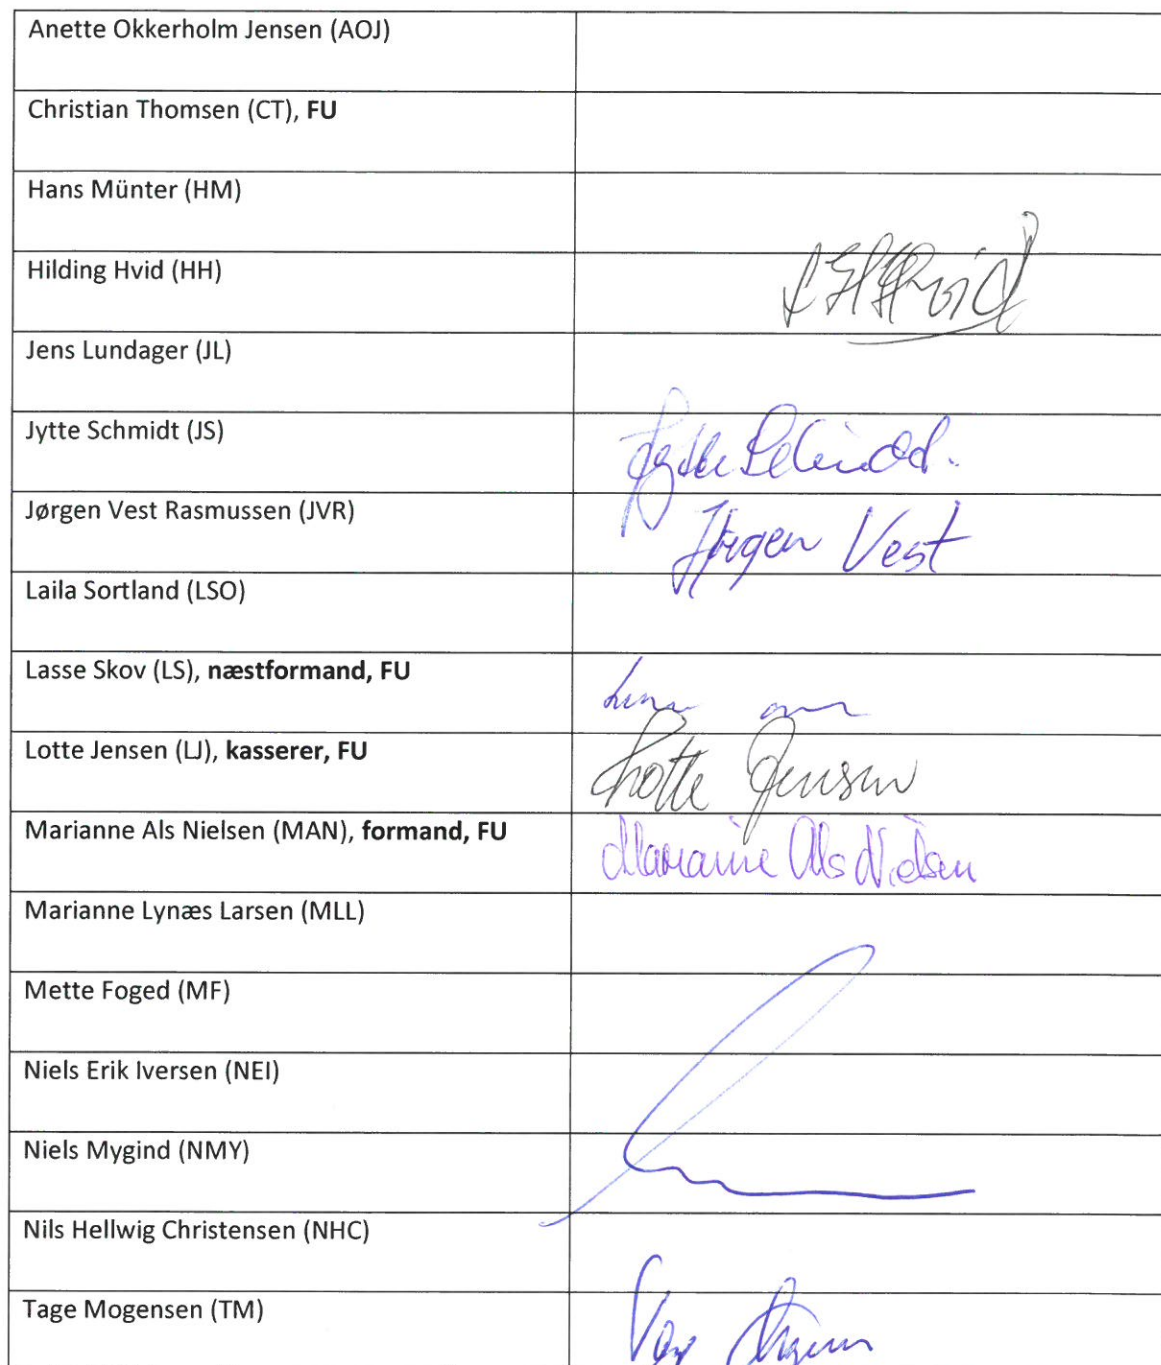 Anette Okkerholm Jensen (AOJ)
Christian Thomsen (CT), FU
Hans Münter (HM)
Hilding Hvid (HH) Hvid
Jens Lundager (JL)
Jytte Schmidt (JS) Jytte
Jørgen Vest Rasmussen (JVR) Jørgen Vest
Laila Sortland (LSO)
Lasse Skov (LS), næstformand, FU
Lotte Jensen (LJ), kasserer, FU Lotte Jensen
Marianne Als Nielsen (MAN), formand, FU Marianne Als Nielsen
Marianne Lynæs Larsen (MLL)
Mette Foged (MF)
Niels Erik Iversen (NEI)
Niels Mygind (NMY)
Nils Hellwig Christensen (NHC)
Tage Mogensen (TM)